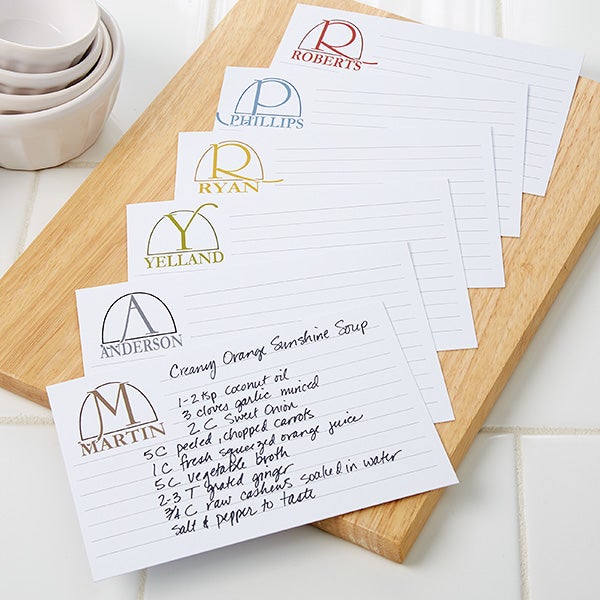 R
ROBERTS
P
PHILLIPS
R
RYAN
Y
YELLAND
A
ANDERSON
M
MARTIN
Creamy Orange Sunshine Soup
1-2 tsp coconut oil
3 cloves garlic minced
2 C Sweet Onion
5 C peeled, chopped carrots
1 C fresh squeezed orange juice
5 C vegetable broth
2-3 T grated ginger
3/4 C raw cashews soaked in water
salt & pepper to taste